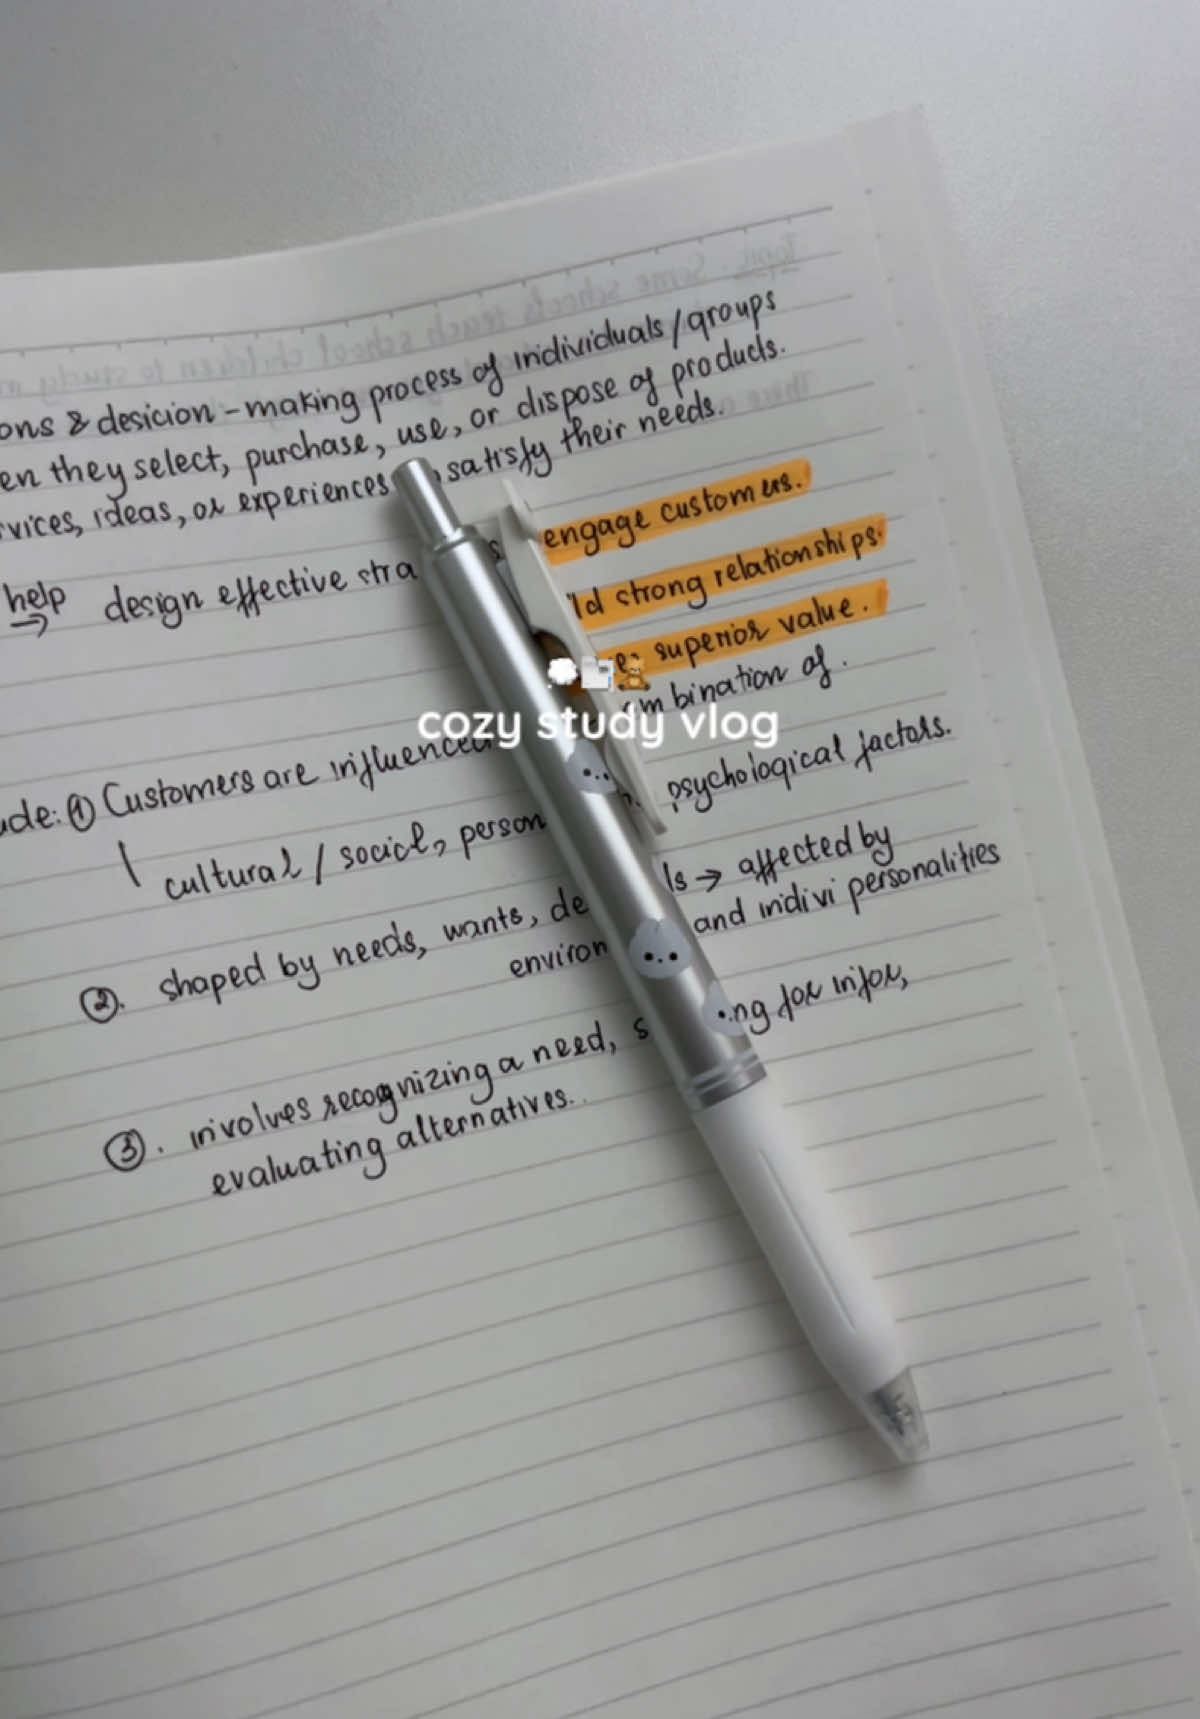 ons & desicion-making process of individuals/groups
en they select, purchase, use, or dispose of products.
rvices, ideas, or experiences satisfy their needs.
help design effective stra s engage customers.
ld strong relationships.
superior value.
cozy study vlog
Customers are influenced mbination of.
ude: ①
cultural / social, person psychological factors.
②. shaped by needs, wants, de ls → affected by
environ and indivi personalities
③. involves recognizing a need, s ng for infor,
evaluating alternatives.